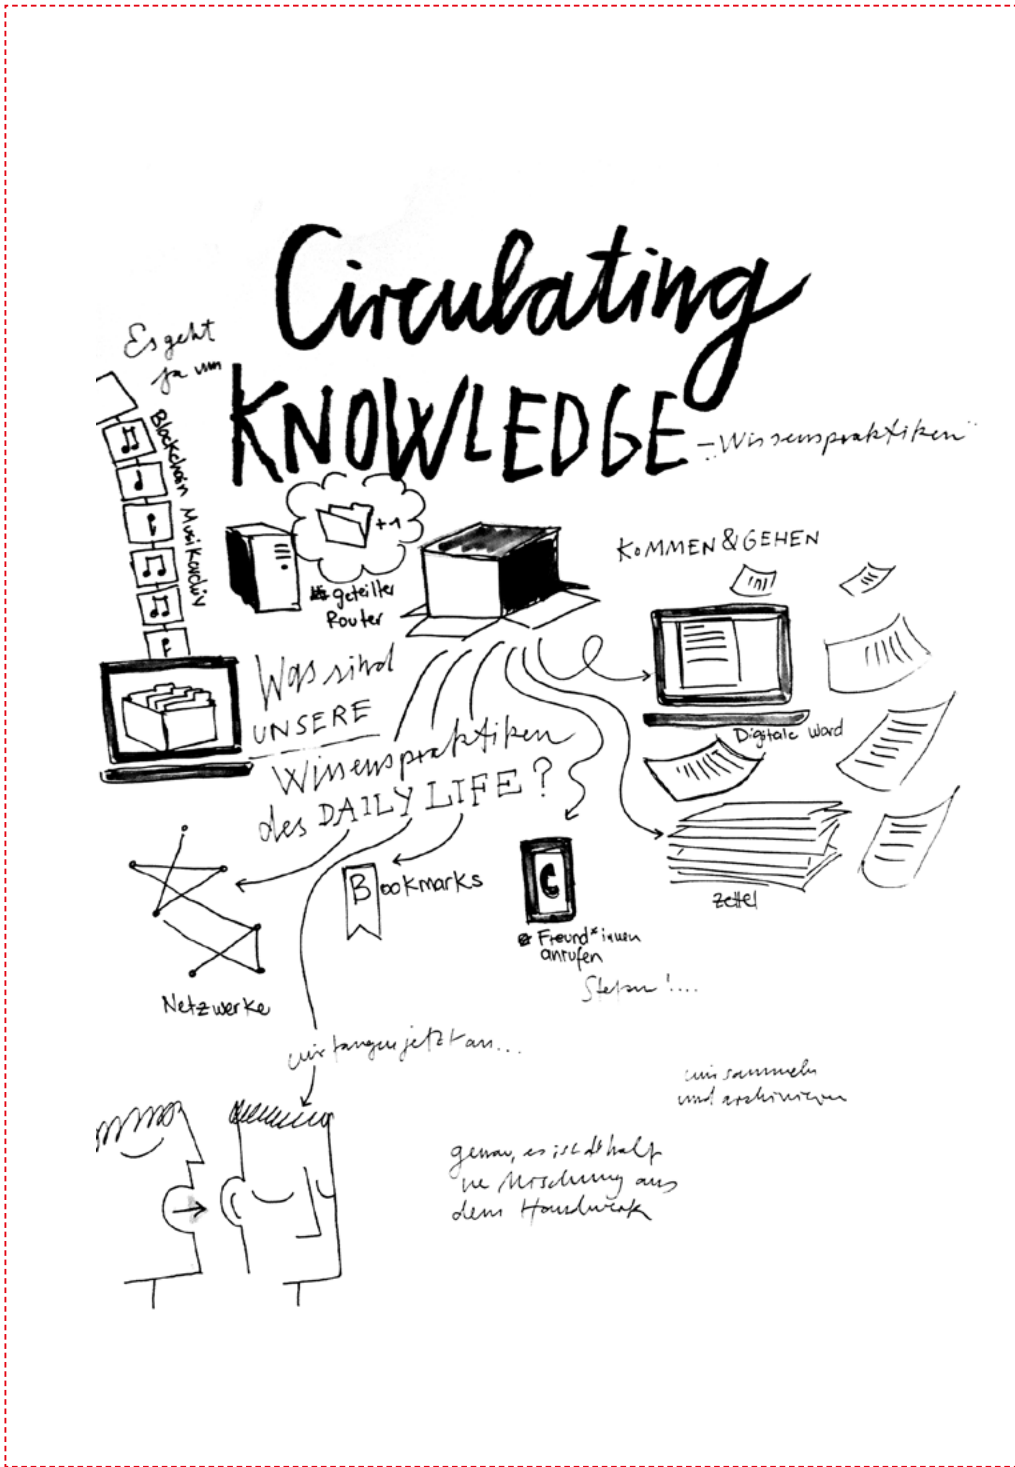 Circulating
KNOWLEDGE
– „Wissenspraktiken"
Es geht
ja um
Blockchain Musikarchiv
+1
geteilter
Router
KOMMEN & GEHEN
Was sind
UNSERE
Wissenspraktiken
des DAILY LIFE?
Digitale Word
Zettel
Bookmarks
Freund*innen
anrufen
Stefan!....
Netzwerke
wir fangen jetzt an...
wir sammeln
und archivieren
genau, es ist halt
ne Mischung aus
dem Handwerk